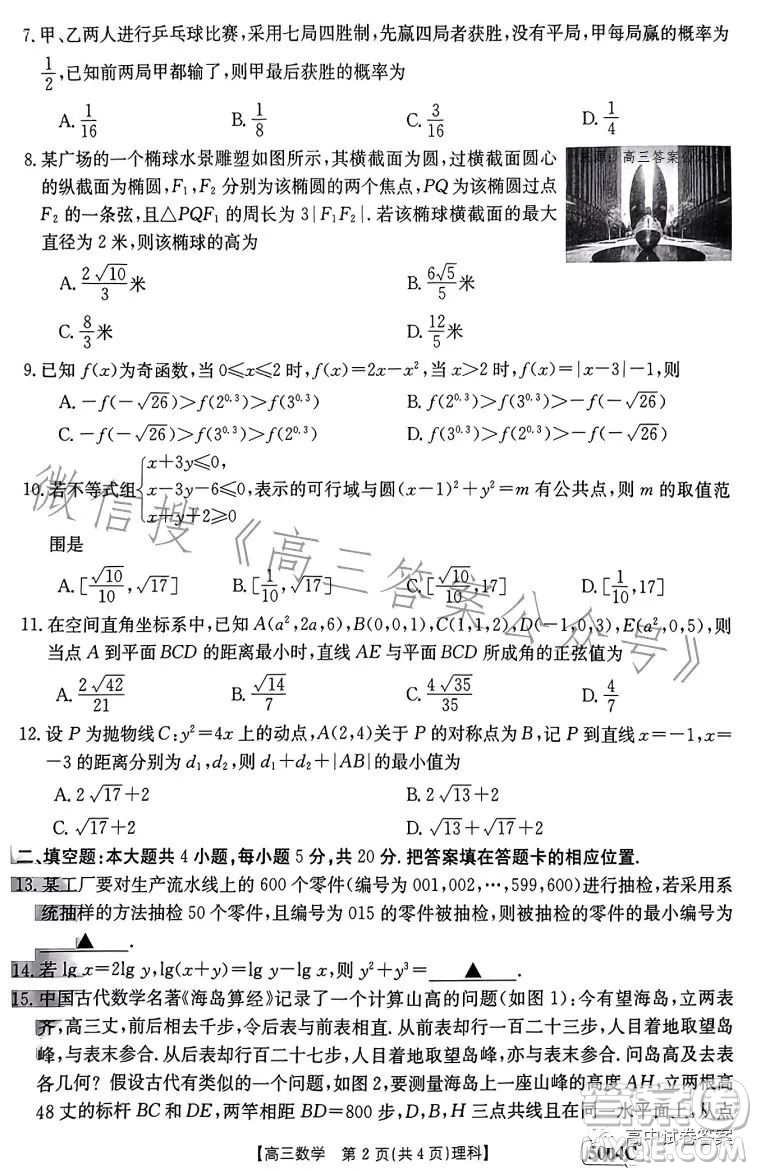 7. 甲、乙两人进行乒乓球比赛,采用七局四胜制,先赢四局者获胜,没有平局,甲每局赢的概率为
1/2,已知前两局甲都输了,则甲最后获胜的概率为
A. 1/16 B. 1/8 C. 3/16 D. 1/4
8. 某广场的一个椭球水景雕塑如图所示,其横截面为圆,过横截面圆心
的纵截面为椭圆,F₁,F₂ 分别为该椭圆的两个焦点,PQ 为该椭圆过点
F₂ 的一条弦,且△PQF₁ 的周长为 3|F₁F₂|. 若该椭球横截面的最大
直径为 2 米,则该椭球的高为
高三答案公众号
A. 2√10/3 米 B. 6√5/5 米
C. 8/3 米 D. 12/5 米
9. 已知 f(x)为奇函数,当 0≤x≤2 时,f(x)=2x-x²,当 x>2 时,f(x)=|x-3|-1,则
A. -f(-√26)>f(2^0.3)>f(3^0.3) B. f(2^0.3)>f(3^0.3)>-f(-√26)
C. -f(-√26)>f(3^0.3)>f(2^0.3) D. f(3^0.3)>f(2^0.3)>-f(-√26)
10. 若不等式组{x+3y≤0, x-3y-6≤0, x+y+2≥0 表示的可行域与圆(x-1)²+y²=m 有公共点,则 m 的取值范
围是
A. [√10/10,√17] B. [1/10,√17] C. [√10/10,17] D. [1/10,17]
11. 在空间直角坐标系中,已知 A(a²,2a,6),B(0,0,1),C(1,1,2),D(-1,0,3),E(a²,0,5),则
当点 A 到平面 BCD 的距离最小时,直线 AE 与平面 BCD 所成角的正弦值为
A. 2√42/21 B. √14/7 C. 4√35/35 D. 4/7
12. 设 P 为抛物线 C:y²=4x 上的动点,A(2,4)关于 P 的对称点为 B,记 P 到直线 x=-1,x=
-3 的距离分别为 d₁,d₂,则 d₁+d₂+|AB|的最小值为
A. 2√17+2 B. 2√13+2
C. √17+2 D. √13+√17+2
二、填空题:本大题共 4 小题,每小题 5 分,共 20 分. 把答案填在答题卡的相应位置.
13. 某工厂要对生产流水线上的 600 个零件(编号为 001,002,…,599,600)进行抽检,若采用系
统抽样的方法抽检 50 个零件,且编号为 015 的零件被抽检,则被抽检的零件的最小编号为
▲.
14. 若 lg x=2lg y,lg(x+y)=lg y-lg x,则 y²+y³= ▲.
15. 中国古代数学名著《海岛算经》记录了一个计算山高的问题(如图 1):今有望海岛,立两表
齐,高三丈,前后相去千步,令后表与前表相直. 从前表却行一百二十三步,人目着地取望岛
峰,与表末参合. 从后表却行百二十七步,人目着地取望岛峰,亦与表末参合. 问岛高及去表
各几何? 假设古代有类似的一个问题,如图 2,要测量海岛上一座山峰的高度 AH,立两根高
48 丈的标杆 BC 和 DE,两竿相距 BD=800 步,D,B,H 三点共线且在同一水平面上,从点
【高三数学 第 2 页(共 4 页)理科】
5004C
微信搜《高三答案公众号》
高中试卷答案